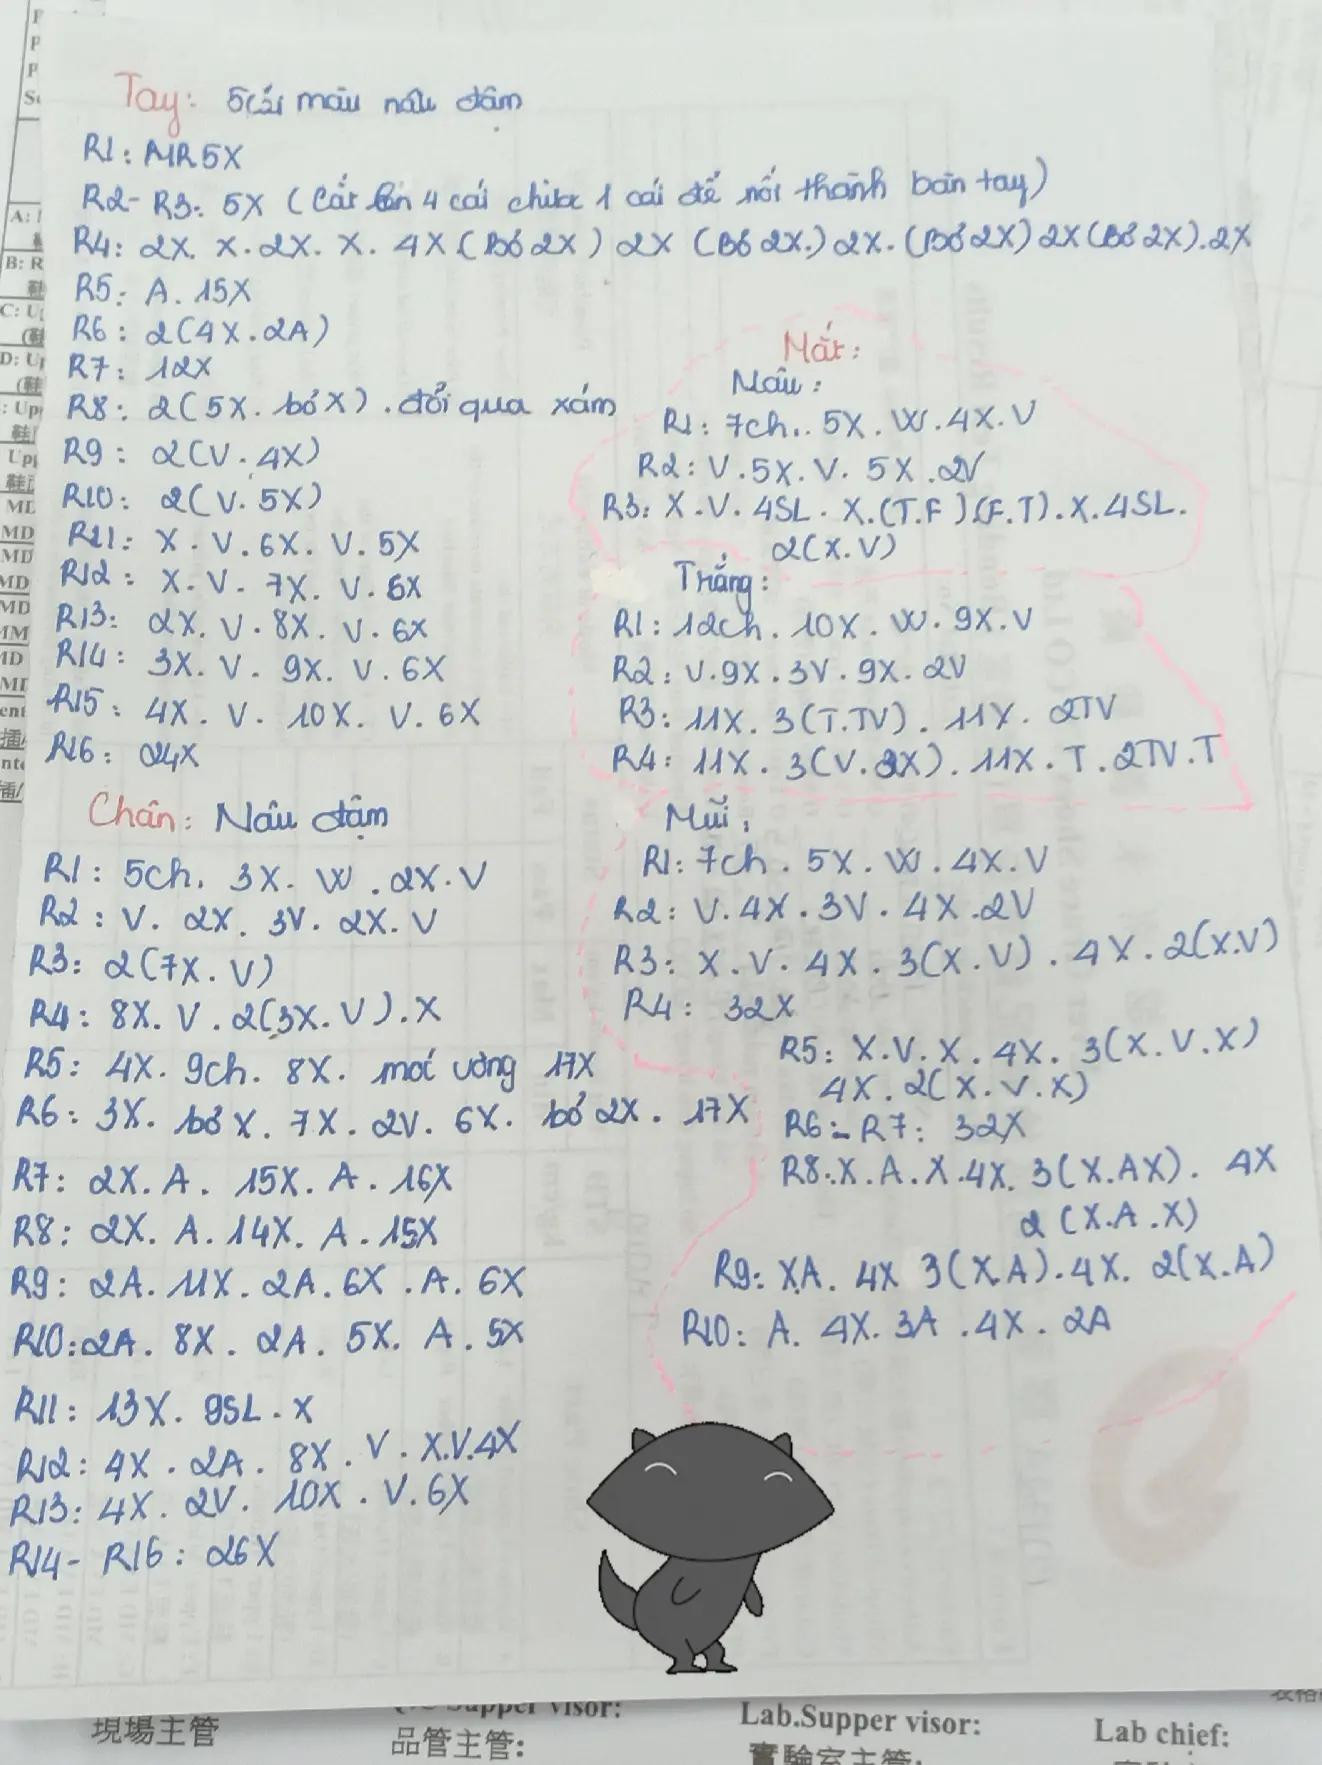 Tay: 5 cái màu nâu đậm
R1: MR5X
R2- R3: 5X (Cắt len 4 cái chừa 1 cái để nối thành bàn tay)
R4: 2X. X. 2X. X. 4X (Bỏ 2X) 2X (Bỏ 2X.) 2X. (Bỏ 2X) 2X (Bỏ 2X). 2X
R5: A. 15X
R6: 2(4X. 2A)
R7: 12X
R8: 2(5X. bỏ X). đổi qua xám
R9: 2(V. 4X)
R10: 2(V. 5X)
R11: X. V. 6X. V. 5X
R12: X. V. 7X. V. 6X
R13: 2X. V. 8X. V. 6X
R14: 3X. V. 9X. V. 6X
R15: 4X. V. 10X. V. 6X
R16: 24X
Chân: Nâu đậm
R1: 5ch. 3X. W. 2X. V
R2: V. 2X. 3V. 2X. V
R3: 2(7X. V)
R4: 8X. V. 2(3X. V). X
R5: 4X. 9ch. 8X. mới vòng 17X
R6: 3X. bỏ X. 7X. 2V. 6X. bỏ 2X. 17X
R7: 2X. A. 15X. A. 16X
R8: 2X. A. 14X. A. 15X
R9: 2A. 11X. 2A. 6X. A. 6X
R10: 2A. 8X. 2A. 5X. A. 5X
R11: 13X. 9SL. X
R12: 4X. 2A. 8X. V. X.V.4X
R13: 4X. 2V. 10X. V. 6X
R14- R16: 26X
Mắt:
Nâu:
R1: 7ch.. 5X. W. 4X. V
R2: V. 5X. V. 5X. 2V
R3: X. V. 4SL. X. (T.F) (F.T). X. 4SL.
2(X.V)
Trắng:
R1: 12ch. 10X. W. 9X. V
R2: V. 9X. 3V. 9X. 2V
R3: 11X. 3(T.TV). 11X. 2TV
R4: 11X. 3(V. 2X). 11X. T. 2TV. T
Mũi:
R1: 7ch. 5X. W. 4X. V
R2: V. 4X. 3V. 4X. 2V
R3: X. V. 4X. 3(X.V). 4X. 2(X.V)
R4: 32X
R5: X.V. X. 4X. 3(X. V. X)
4X. 2(X. V. X)
R6- R7: 32X
R8: X. A. X. 4X. 3(X.AX). 4X
2(X.A.X)
R9: XA. 4X 3(X.A). 4X. 2(X.A)
R10: A. 4X. 3A. 4X. 2A
現場主管
品管主管:
Lab.Supper visor:
Lab chief: